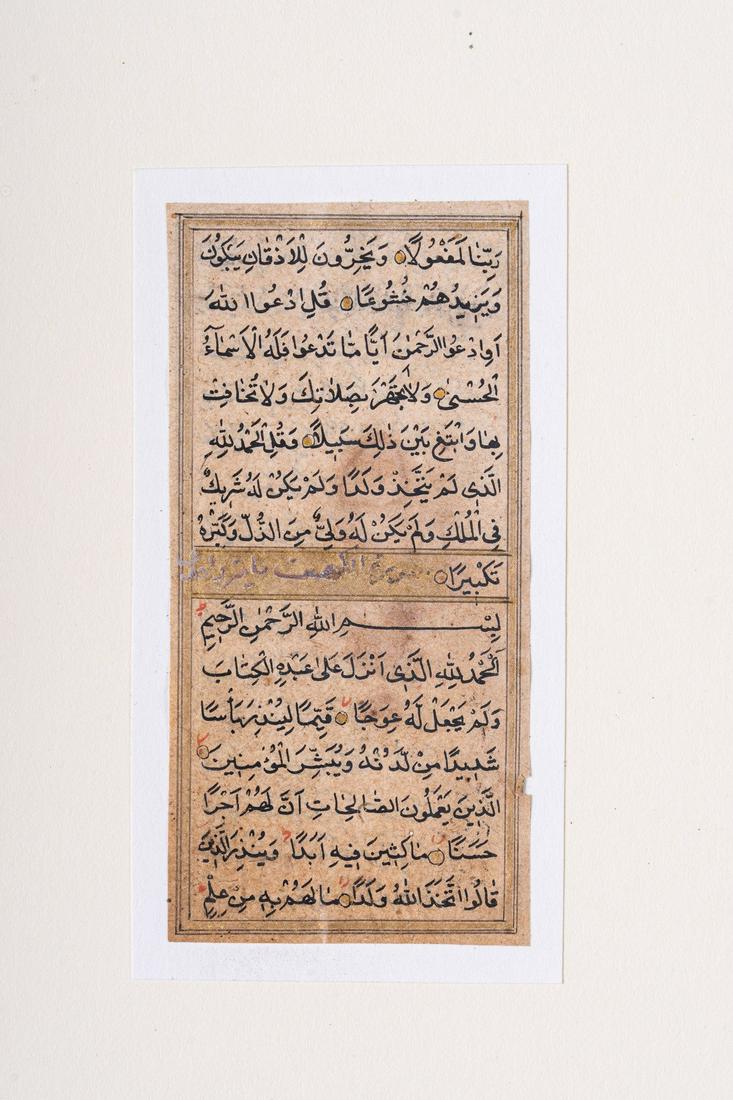 رَبِّنَا لَمَفْعُولًا وَيَخِرُّونَ لِلْأَذْقَانِ يَبْكُونَ
وَيَزِيدُهُمْ خُشُوعًا قُلِ ادْعُوا اللهَ
اَوِ ادْعُوا الرَّحْمٰنَ اَيًّا مَّا تَدْعُوا فَلَهُ الْاَسْمَآءُ
الْحُسْنٰى وَلَا تَجْهَرْ بِصَلَاتِكَ وَلَا تُخَافِتْ
بِهَا وَابْتَغِ بَيْنَ ذٰلِكَ سَبِيلًا وَقُلِ الْحَمْدُ لِلّٰهِ
الَّذِى لَمْ يَتَّخِذْ وَلَدًا وَلَمْ يَكُنْ لَهُ شَرِيكٌ
فِى الْمُلْكِ وَلَمْ يَكُنْ لَهُ وَلِىٌّ مِنَ الذُّلِّ وَكَبِّرْهُ
تَكْبِيرًا سورة الكهف
بِسْمِ اللهِ الرَّحْمٰنِ الرَّحِيمِ
اَلْحَمْدُ لِلّٰهِ الَّذِى اَنْزَلَ عَلٰى عَبْدِهِ الْكِتَابَ
وَلَمْ يَجْعَلْ لَهُ عِوَجًا قَيِّمًا لِيُنْذِرَ بَأْسًا
شَدِيدًا مِنْ لَدُنْهُ وَيُبَشِّرَ الْمُؤْمِنِينَ
الَّذِينَ يَعْمَلُونَ الصَّالِحَاتِ اَنَّ لَهُمْ اَجْرًا
حَسَنًا مَاكِثِينَ فِيهِ اَبَدًا وَيُنْذِرَ الَّذِينَ
قَالُوا اتَّخَذَ اللهُ وَلَدًا مَا لَهُمْ بِهِ مِنْ عِلْمٍ